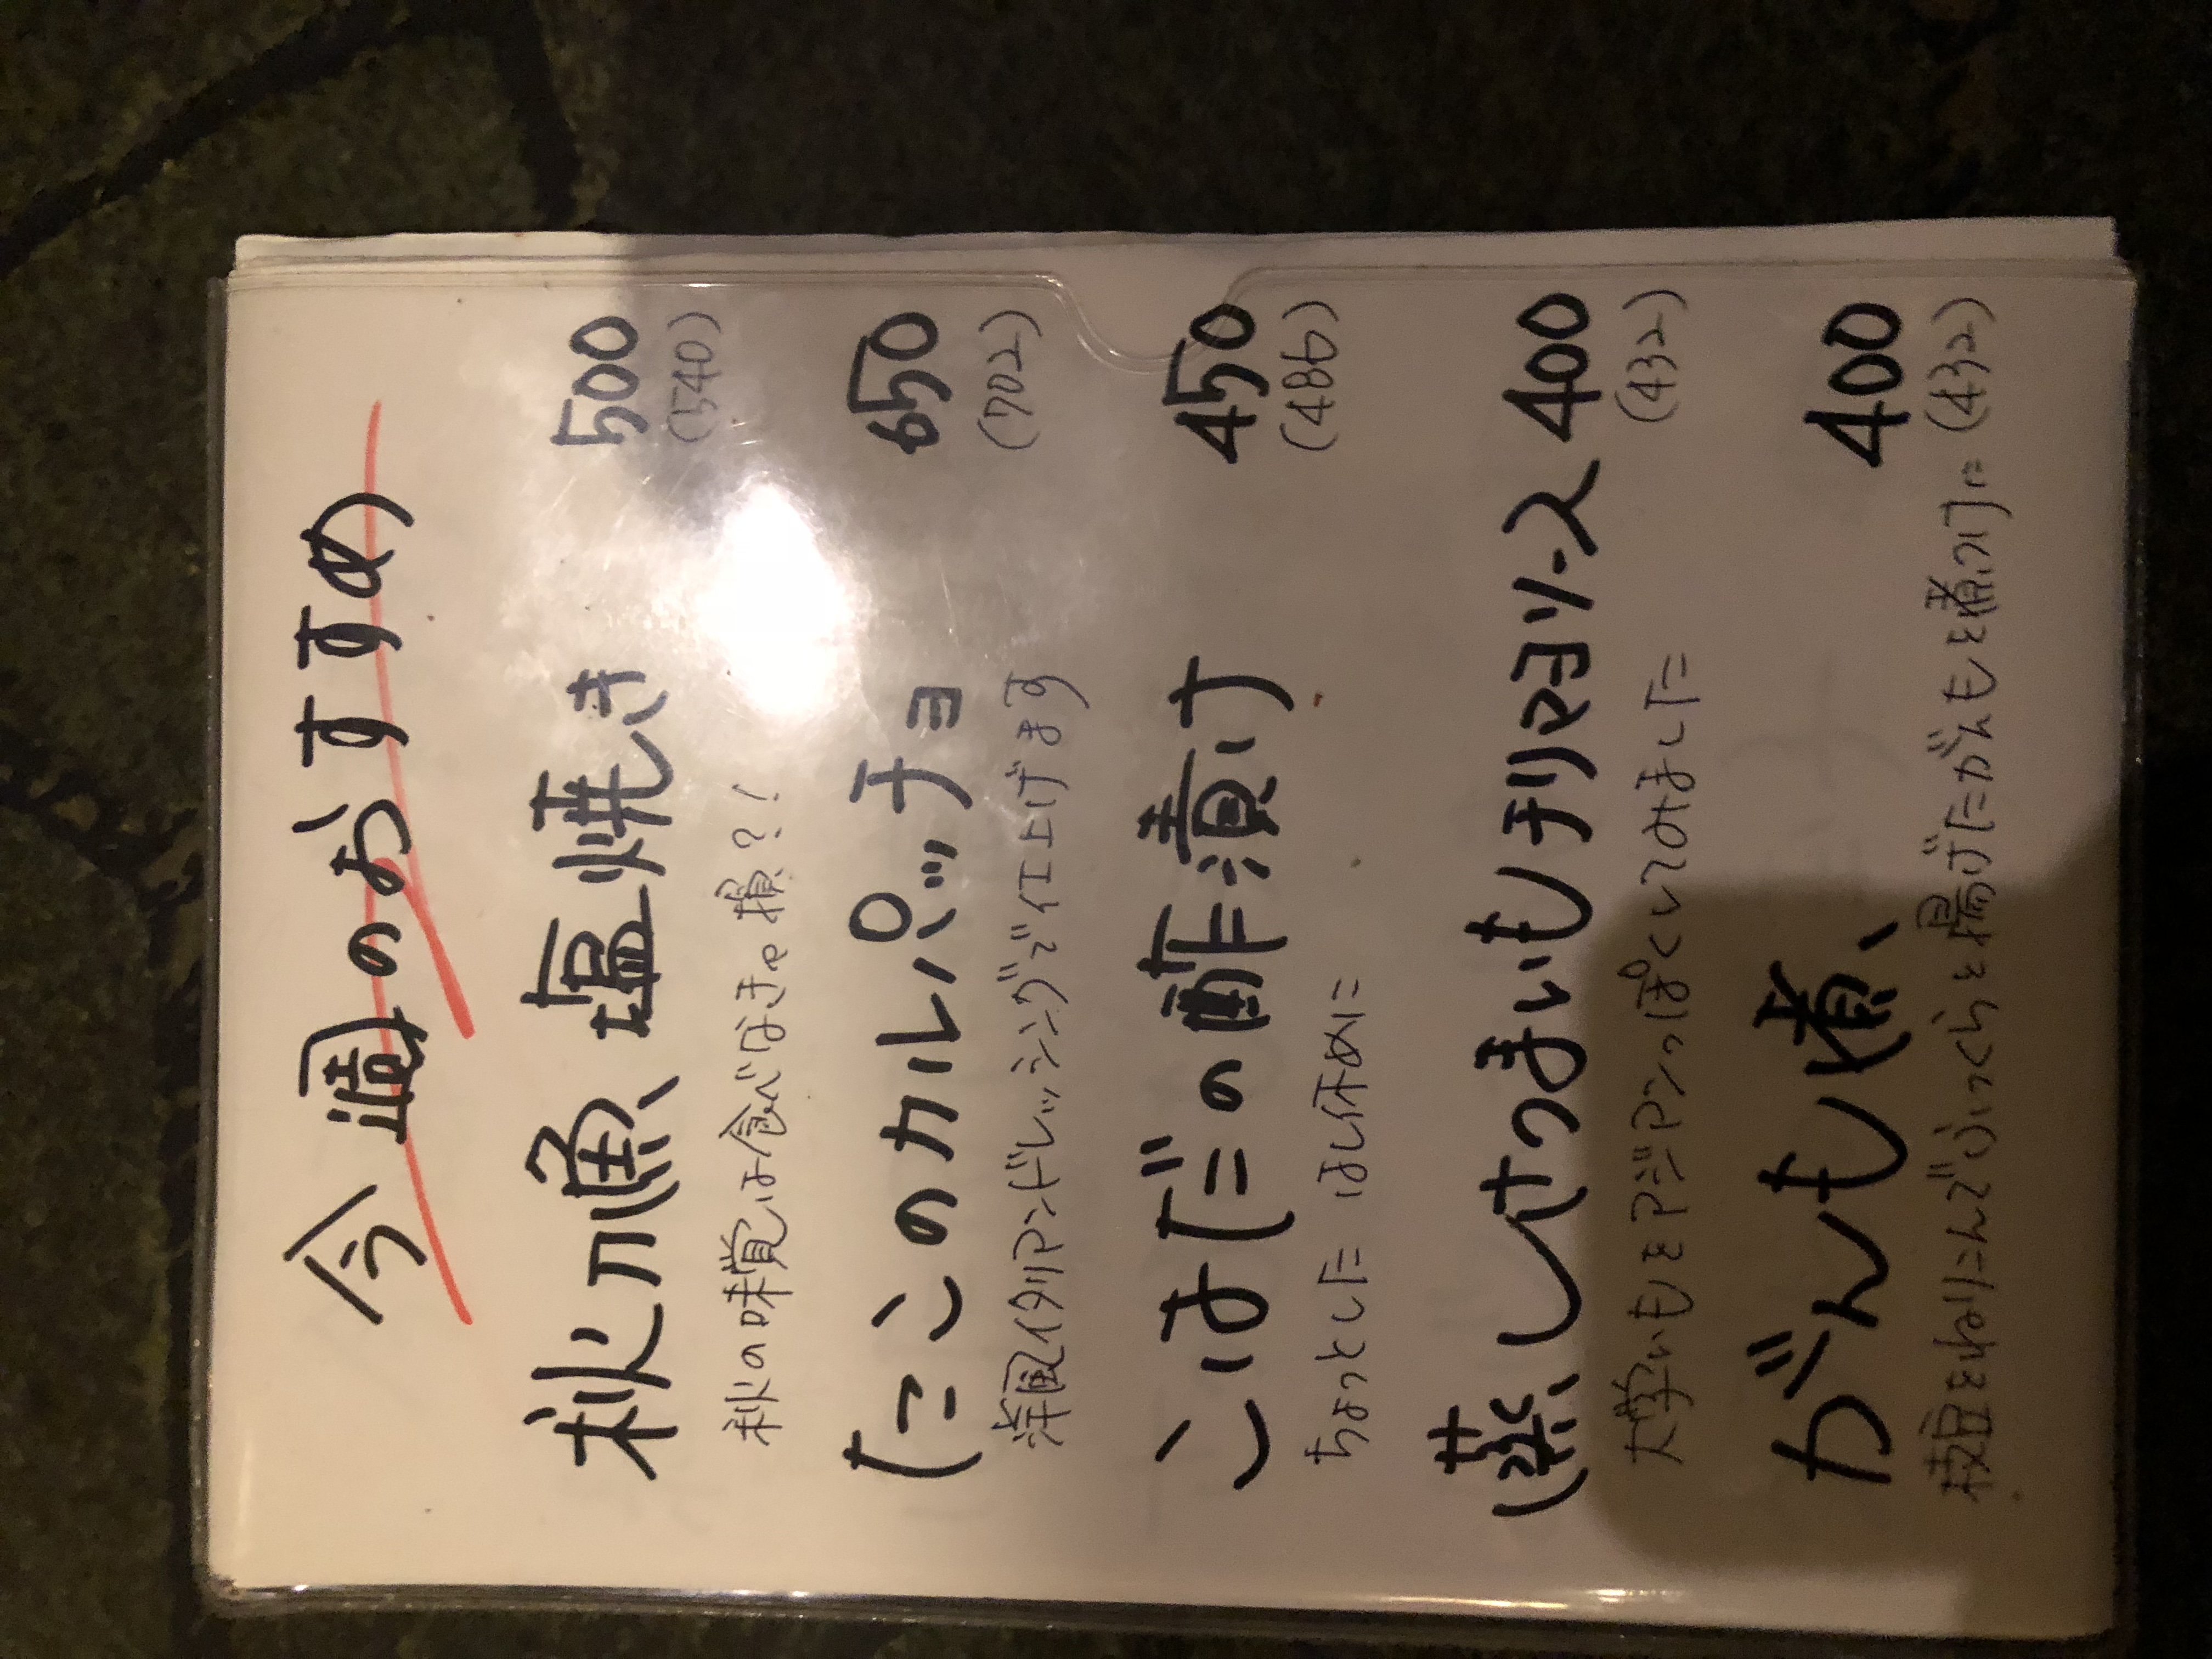 今週のおすすめ
秋刀魚 塩焼き 500
(540)
秋の味覚は食べなきゃ損?!
たこのカルパッチョ 650
(702)
洋風イタリアンドレッシングで仕上げます
こはだの酢漬け 450
(486)
ちょっとした はし休めに
蒸しさつまいもチリマヨソース 400
(432)
大学いもをアジアンっぽくしてみました
がんも煮、 400
(432)
枝豆をねりこんでふっくらと揚げたがんもを煮つけに